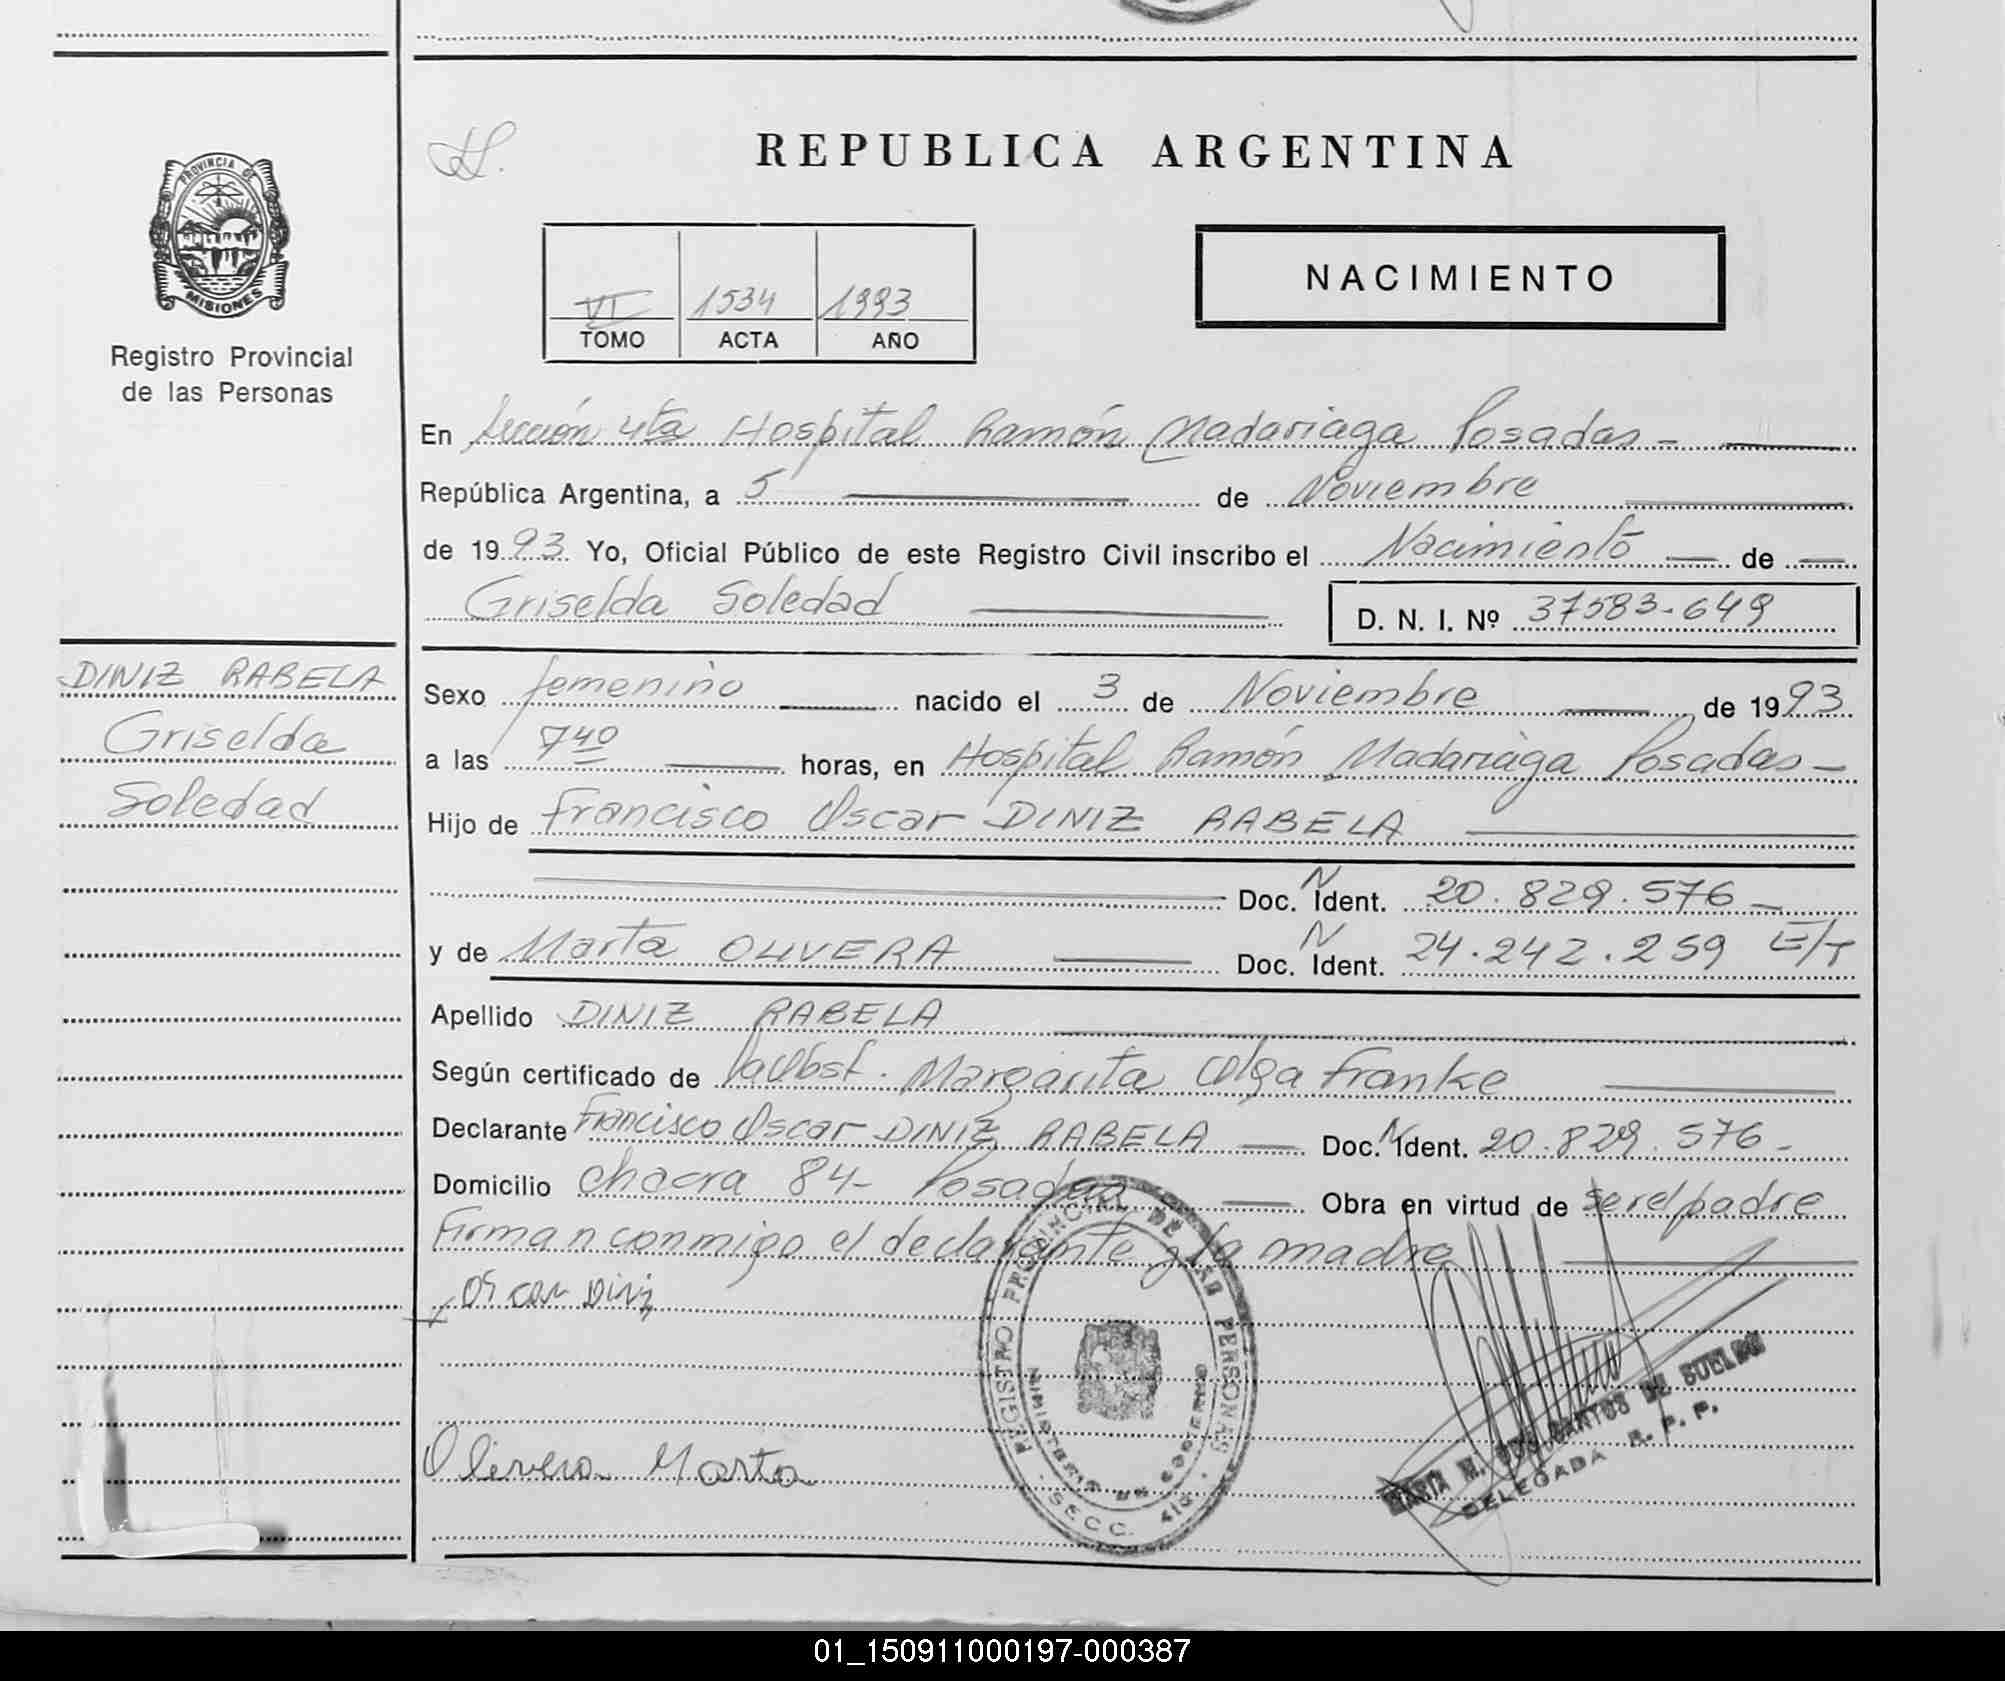 H.
REPUBLICA ARGENTINA
PROVINCIA DE
MISIONES
Registro Provincial
de las Personas
VI 1534 1993
TOMO ACTA AÑO
NACIMIENTO
En Sección 4ta Hospital Ramón Madariaga Posadas -
República Argentina, a 5 de Noviembre
de 1993 Yo, Oficial Público de este Registro Civil inscribo el Nacimiento de
Griselda Soledad D. N. I. Nº 37583-649
DINIZ RABELA
Griselda
Soledad
Sexo femenino nacido el 3 de Noviembre de 1993
a las 7 40 horas, en Hospital Ramón Madariaga Posadas -
Hijo de Francisco Oscar DINIZ RABELA
Doc. N Ident. 20.829.576 -
y de Marta OLIVERA Doc. N Ident. 24.242.259 E/T
Apellido DINIZ RABELA
Según certificado de la Obst. Margarita Olga Franke
Declarante Francisco Oscar DINIZ RABELA Doc. N Ident. 20.829.576 -
Domicilio Chacra 84 - Posadas Obra en virtud de ser el padre
Firman conmigo el declarante y la madre
Oscar Diniz
Olivera Marta
REGISTRO PROVINCIAL DE LAS PERSONAS
MINISTERIO DE GOBIERNO
SECC. 4ta.
MARTA M. DOS SANTOS DE SUELDO
DELEGADA R. P. P.
01_150911000197-000387